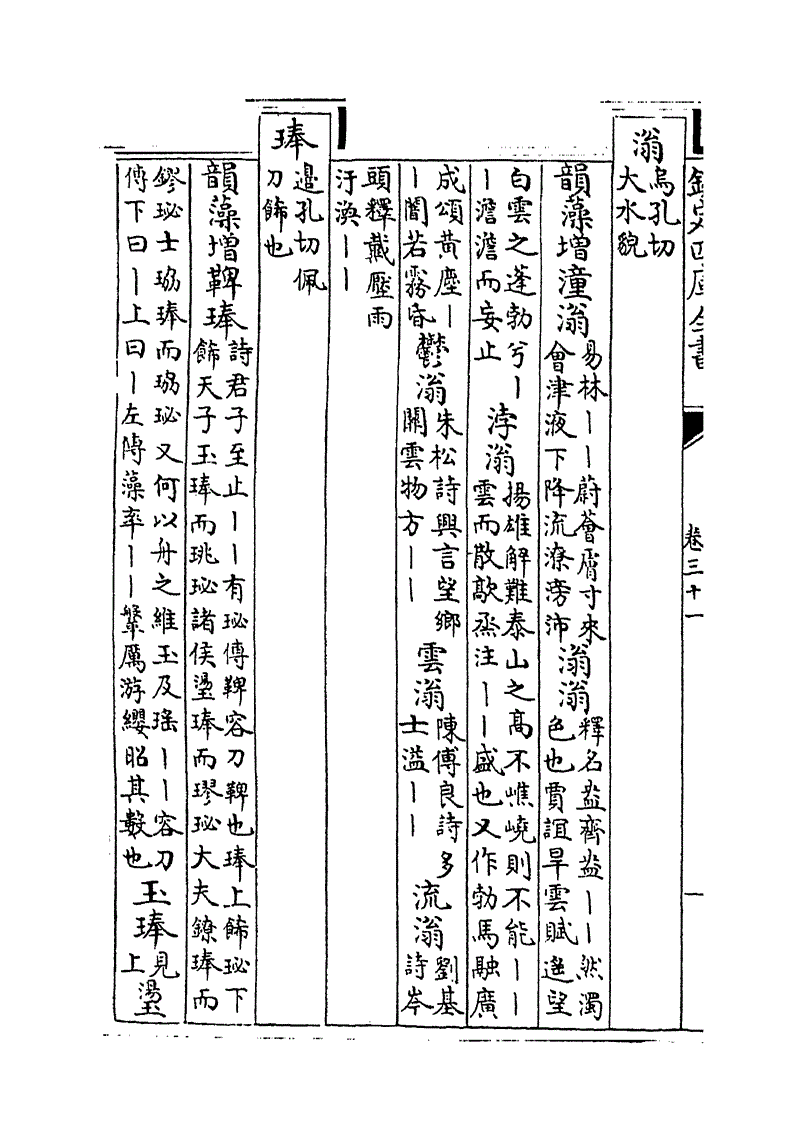 欽定四庫全書
卷三十一
一
滃
烏孔切
大水貌
韻藻增潼滃
易林丨丨蔚薈膚寸來
會津液下降流潦滂沛
滃滃
釋名盎齊盎丨丨然濁
色也賈誼旱雲賦遙望
白雲之蓬勃兮丨
丨澹澹而妄止
浡滃
揚雄解難泰山之高不嶕嶢則不能丨丨
雲而散歊烝注丨丨盛也又作勃馬融廣
成頌黄塵丨
丨闇若霧昏
鬱滃
朱松詩興言望鄉
關雲物方丨丨
雲滃
陳傅良詩多
士溢丨丨
流滃
劉基
詩岑
頭釋戴壓雨
汙渙丨丨
琫
邊孔切佩
刀飾也
韻藻增鞞琫
詩君子至止丨丨有珌傳鞞容刀鞞也琫上飾珌下
飾天子玉琫而珧珌諸侯璗琫而璆珌大夫鐐琫而
鏐珌士珕琫而珕珌又何以舟之維玉及瑤丨丨容刀
傳下曰丨上曰丨左傳藻率丨丨鞶厲游纓昭其數也
玉琫
見
上
璗